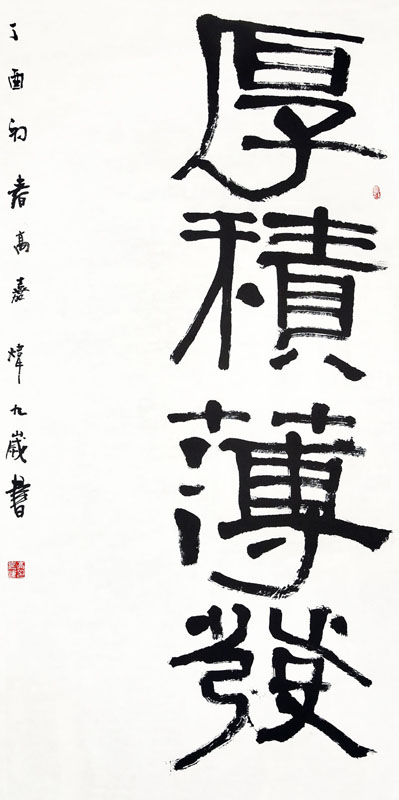 厚積薄發
丁酉初春高嘉煒九歲書